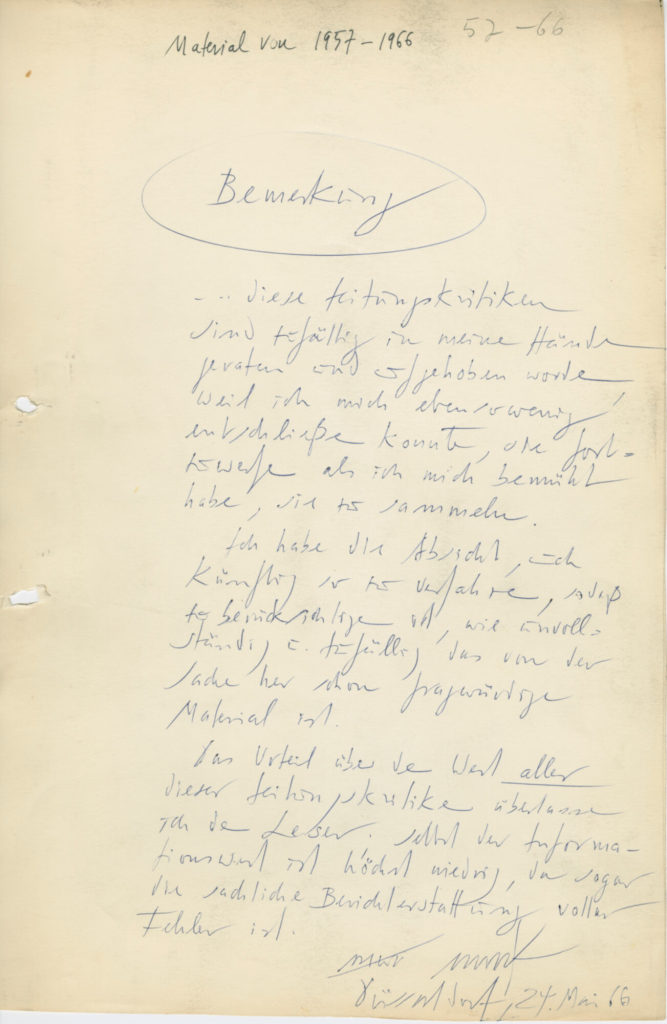 Material von 1957–1966 57–66
Bemerkung
... diese Zeitungskritiken
sind zufällig in meine Hände
geraten und aufgehoben worden,
weil ich mich ebensowenig
entschließen konnte, sie fort-
zuwerfen als ich mich bemüht
habe, sie zu sammeln.
Ich habe die Absicht, auch
künftig so zu verfahren, sodaß
zu berücksichtigen ist, wie unvoll-
ständig u. zufällig das von der
Sache her schon fragwürdige
Material ist.
Das Urteil über den Wert aller
dieser Zeitungskritiken überlasse
ich dem Leser. Selbst der Informa-
tionswert ist höchst niedrig, da sogar
die sachliche Berichterstattung voller
Fehler ist.
Düsseldorf, 24. Mai 66